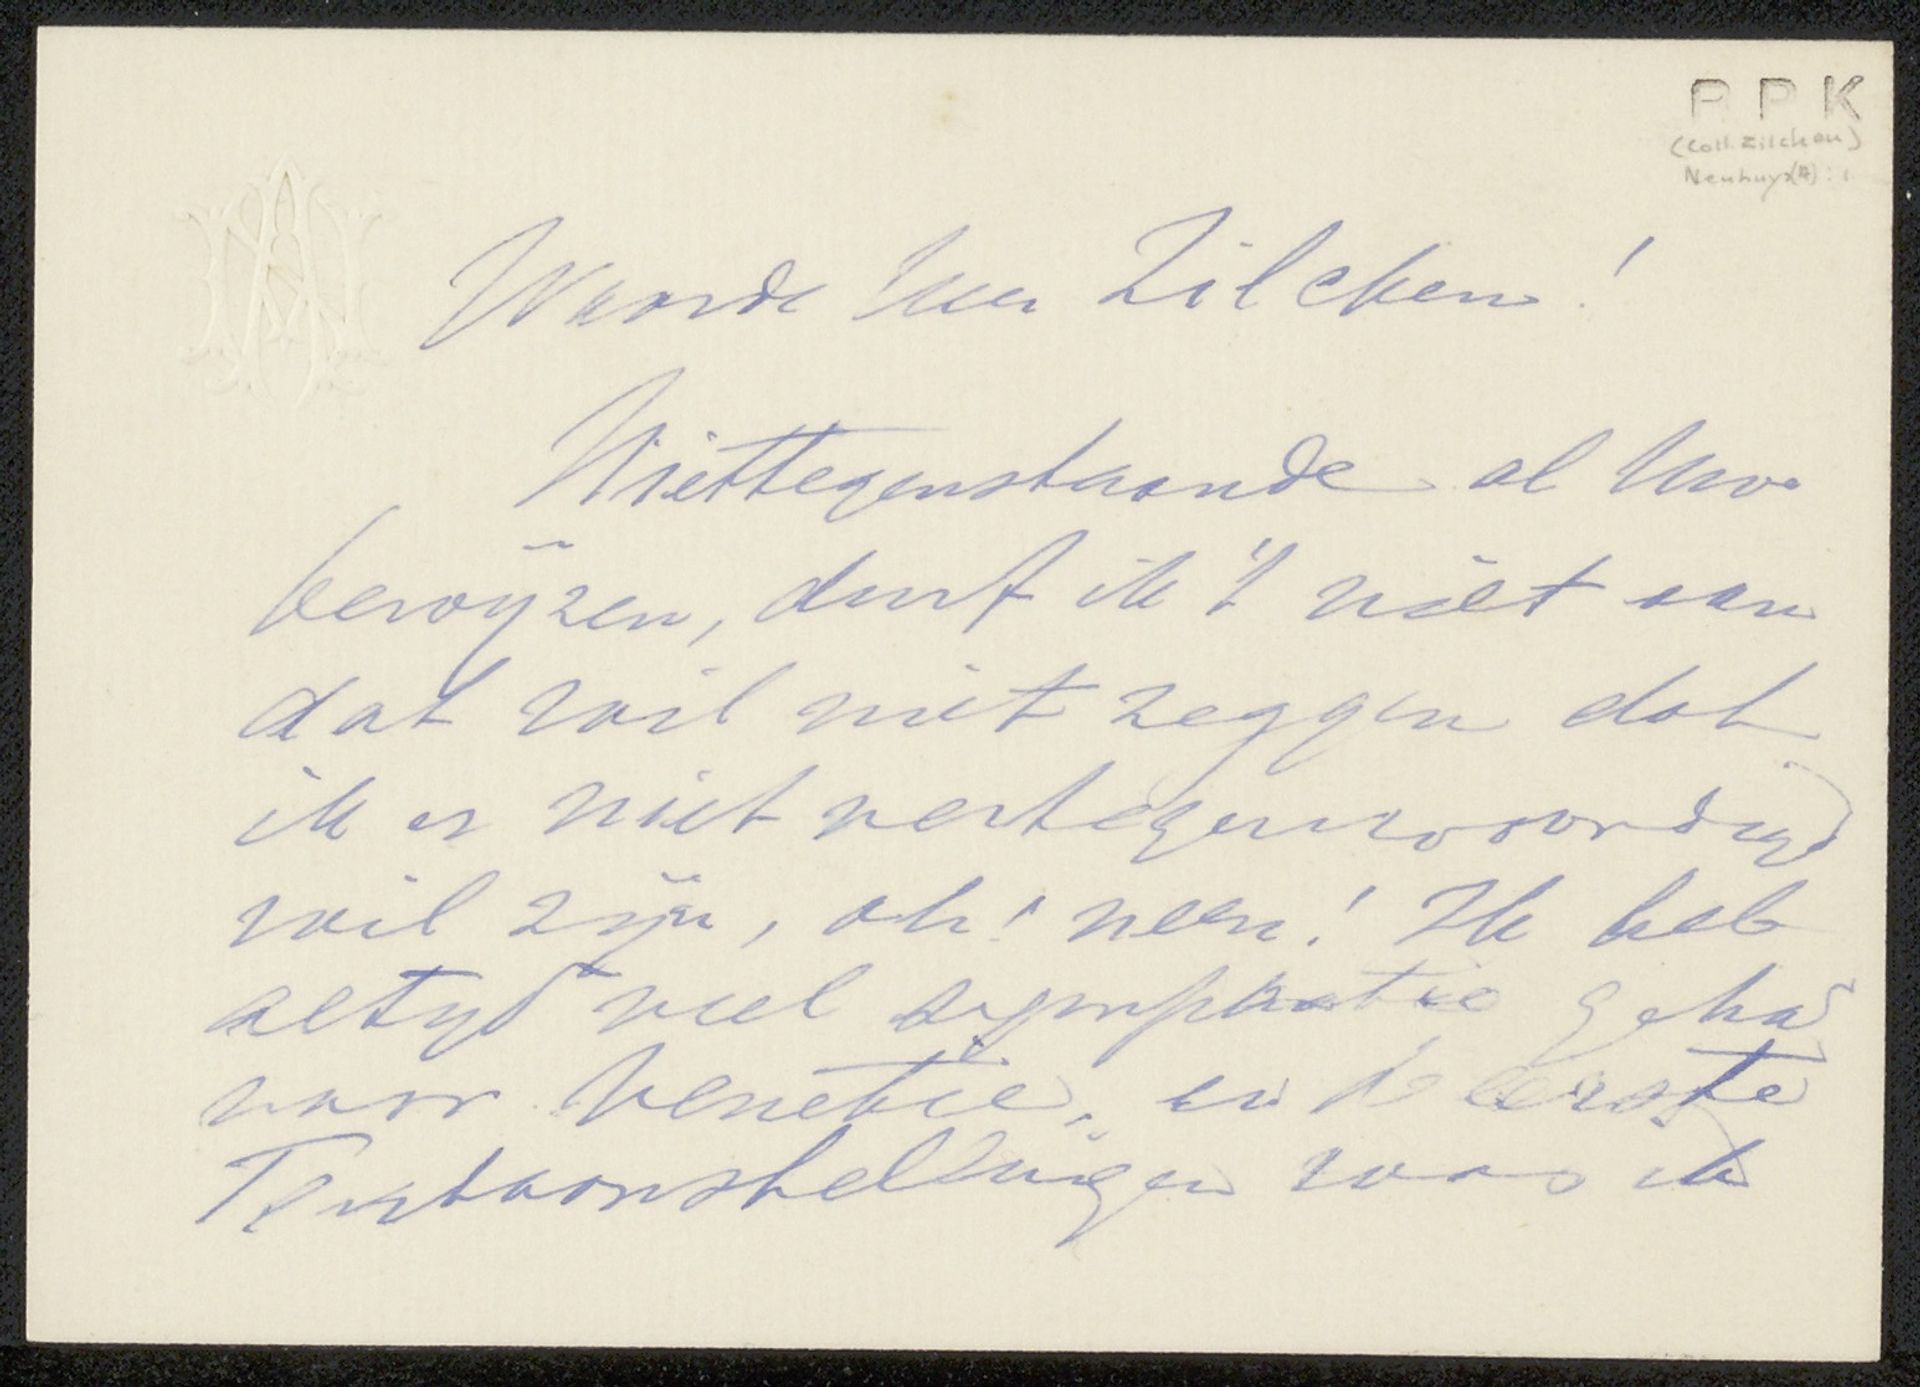 R P K
(Coll. Zilcken)
Neuhuys(A): 1
AN
Waarde Heer Zilcken!
Niettegenstaande al Uwe
bewijzen, durf ik 't niet aan
dat wil niet zeggen dat
ik er niet vertegenwoordigd
wil zijn, oh! neen! Ik heb
altijd veel sympathie gehad
voor Venetie, en de eerste
Tentoonstellingen was ik